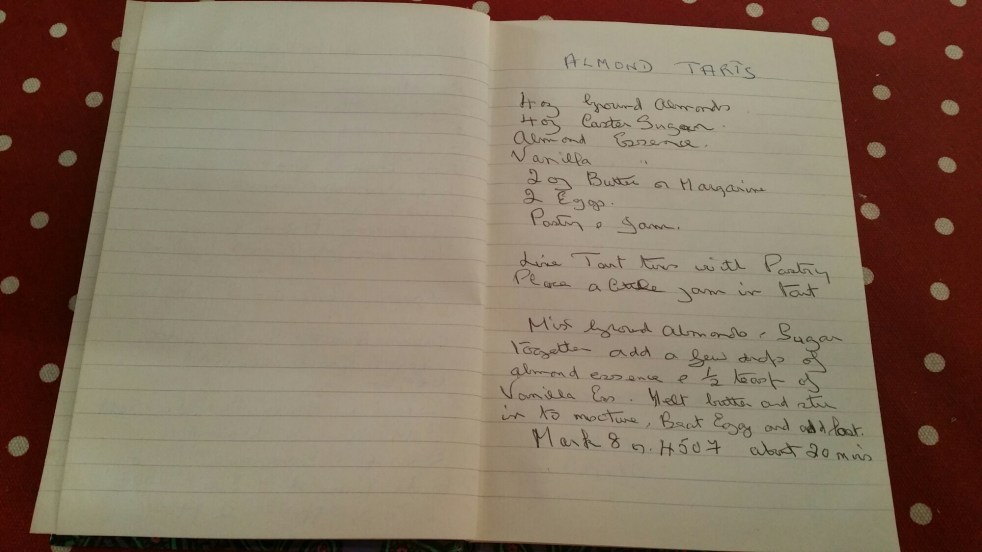 ALMOND TARTS
4 oz Ground Almonds
4 oz Caster Sugar.
Almond Essence.
Vanilla "
2 oz Butter or Margarine
2 Eggs.
Pastry & Jam.
Line Tart tins with Pastry
Place a little jam in tart
Mix Ground Almonds, Sugar
together add a few drops of
almond essence & ½ teasp of
Vanilla Ess. Melt butter and stir
in to mixture, Beat Eggs and add last.
Mark 8 or 450 F about 20 mins